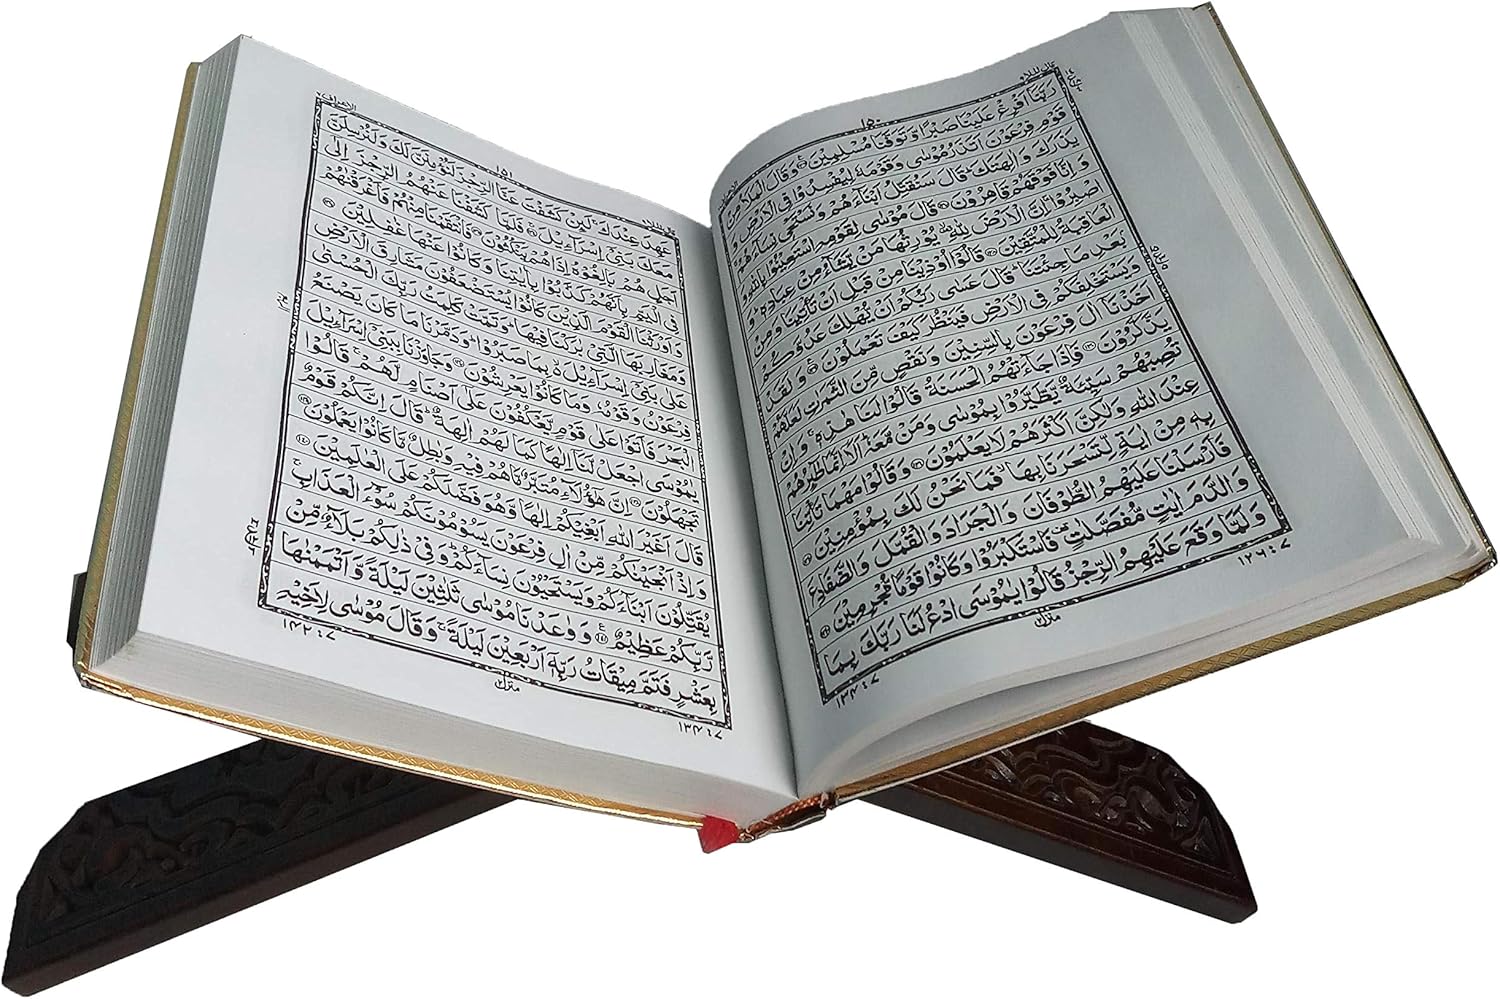 قال الملأ ٩
١٥٠
الاعراف ٧
رَبَّنَآ اَفْرِغْ عَلَيْنَا صَبْرًا وَّتَوَفَّنَا مُسْلِمِيْنَ وَقَالَ الْمَلَاُ مِنْ
قَوْمِ فِرْعَوْنَ اَتَذَرُ مُوْسٰى وَقَوْمَهٗ لِيُفْسِدُوْا فِى الْاَرْضِ وَ
يَذَرَكَ وَاٰلِهَتَكَ ؕ قَالَ سَنُقَتِّلُ اَبْنَآءَهُمْ وَنَسْتَحْىٖ نِسَآءَهُمْ
وَاِنَّا فَوْقَهُمْ قَاهِرُوْنَ ۝١٢٧ قَالَ مُوْسٰى لِقَوْمِهِ اسْتَعِيْنُوْا بِاللّٰهِ وَ
اصْبِرُوْا ۚ اِنَّ الْاَرْضَ لِلّٰهِ ۙ يُوْرِثُهَا مَنْ يَّشَآءُ مِنْ عِبَادِهٖ ؕ وَ
الْعَاقِبَةُ لِلْمُتَّقِيْنَ ۝١٢٨ قَالُوْٓا اُوْذِيْنَا مِنْ قَبْلِ اَنْ تَاْتِيَنَا وَمِنْۢ
بَعْدِ مَا جِئْتَنَا ؕ قَالَ عَسٰى رَبُّكُمْ اَنْ يُّهْلِكَ عَدُوَّكُمْ
وَيَسْتَخْلِفَكُمْ فِى الْاَرْضِ فَيَنْظُرَ كَيْفَ تَعْمَلُوْنَ ۝١٢٩ وَلَقَدْ
اَخَذْنَآ اٰلَ فِرْعَوْنَ بِالسِّنِيْنَ وَنَقْصٍ مِّنَ الثَّمَرٰتِ لَعَلَّهُمْ
يَذَّكَّرُوْنَ ۝١٣٠ فَاِذَا جَآءَتْهُمُ الْحَسَنَةُ قَالُوْا لَنَا هٰذِهٖ ۚ وَاِنْ
تُصِبْهُمْ سَيِّئَةٌ يَّطَّيَّرُوْا بِمُوْسٰى وَمَنْ مَّعَهٗ ؕ اَلَآ اِنَّمَا طٰٓئِرُهُمْ
عِنْدَ اللّٰهِ وَلٰكِنَّ اَكْثَرَهُمْ لَا يَعْلَمُوْنَ ۝١٣١ وَقَالُوْا مَهْمَا تَاْتِنَا
بِهٖ مِنْ اٰيَةٍ لِّتَسْحَرَنَا بِهَا ۙ فَمَا نَحْنُ لَكَ بِمُؤْمِنِيْنَ ۝١٣٢
فَاَرْسَلْنَا عَلَيْهِمُ الطُّوْفَانَ وَالْجَرَادَ وَالْقُمَّلَ وَالضَّفَادِعَ
وَالدَّمَ اٰيٰتٍ مُّفَصَّلٰتٍ ۫ فَاسْتَكْبَرُوْا وَكَانُوْا قَوْمًا مُّجْرِمِيْنَ ۝١٣٣
وَلَمَّا وَقَعَ عَلَيْهِمُ الرِّجْزُ قَالُوْا يٰمُوْسَى ادْعُ لَنَا رَبَّكَ بِمَا
منزل٢
الاعراف ٧
١٥١
قال الملأ ٩
عَهِدَ عِنْدَكَ ۚ لَئِنْ كَشَفْتَ عَنَّا الرِّجْزَ لَنُؤْمِنَنَّ لَكَ وَلَنُرْسِلَنَّ
مَعَكَ بَنِىْٓ اِسْرَآءِيْلَ ۝١٣٤ فَلَمَّا كَشَفْنَا عَنْهُمُ الرِّجْزَ اِلٰٓى
اَجَلٍ هُمْ بٰلِغُوْهُ اِذَا هُمْ يَنْكُثُوْنَ ۝١٣٥ فَانْتَقَمْنَا مِنْهُمْ فَاَغْرَقْنٰهُمْ
فِى الْيَمِّ بِاَنَّهُمْ كَذَّبُوْا بِاٰيٰتِنَا وَكَانُوْا عَنْهَا غٰفِلِيْنَ ۝١٣٦
وَاَوْرَثْنَا الْقَوْمَ الَّذِيْنَ كَانُوْا يُسْتَضْعَفُوْنَ مَشَارِقَ الْاَرْضِ
وَمَغَارِبَهَا الَّتِىْ بٰرَكْنَا فِيْهَا ؕ وَتَمَّتْ كَلِمَتُ رَبِّكَ الْحُسْنٰى
عَلٰى بَنِىْٓ اِسْرَآءِيْلَ ۙ بِمَا صَبَرُوْا ؕ وَدَمَّرْنَا مَا كَانَ يَصْنَعُ
فِرْعَوْنُ وَقَوْمُهٗ وَمَا كَانُوْا يَعْرِشُوْنَ ۝١٣٧ وَجَاوَزْنَا بِبَنِىْٓ اِسْرَآءِيْلَ
الْبَحْرَ فَاَتَوْا عَلٰى قَوْمٍ يَّعْكُفُوْنَ عَلٰٓى اَصْنَامٍ لَّهُمْ ۚ قَالُوْا
يٰمُوْسَى اجْعَلْ لَّنَآ اِلٰهًا كَمَا لَهُمْ اٰلِهَةٌ ؕ قَالَ اِنَّكُمْ قَوْمٌ
تَجْهَلُوْنَ ۝١٣٨ اِنَّ هٰٓؤُلَآءِ مُتَبَّرٌ مَّا هُمْ فِيْهِ وَبٰطِلٌ مَّا كَانُوْا يَعْمَلُوْنَ ۝١٣٩
قَالَ اَغَيْرَ اللّٰهِ اَبْغِيْكُمْ اِلٰهًا وَّهُوَ فَضَّلَكُمْ عَلَى الْعٰلَمِيْنَ ۝١٤٠
وَاِذْ اَنْجَيْنٰكُمْ مِّنْ اٰلِ فِرْعَوْنَ يَسُوْمُوْنَكُمْ سُوْٓءَ الْعَذَابِ ۚ
يُقَتِّلُوْنَ اَبْنَآءَكُمْ وَيَسْتَحْيُوْنَ نِسَآءَكُمْ ؕ وَفِىْ ذٰلِكُمْ بَلَآءٌ مِّنْ
رَّبِّكُمْ عَظِيْمٌ ۝١٤١ وَوٰعَدْنَا مُوْسٰى ثَلٰثِيْنَ لَيْلَةً وَّاَتْمَمْنٰهَا
بِعَشْرٍ فَتَمَّ مِيْقَاتُ رَبِّهٖٓ اَرْبَعِيْنَ لَيْلَةً ۚ وَقَالَ مُوْسٰى لِاَخِيْهِ
منزل٢